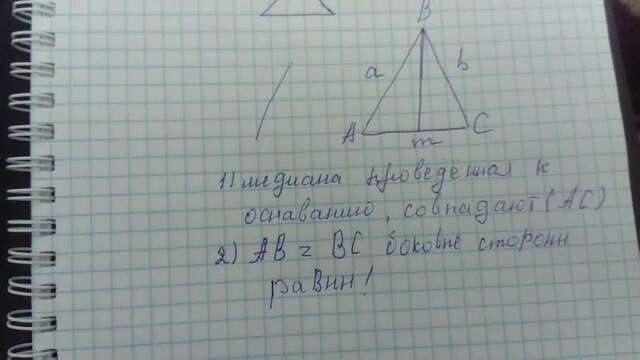 B
a
b
A
C
m
1) медиана проведенная к
оснаванию, совпадают (AC)
2) AB = BC боковне сторонн
равнн!